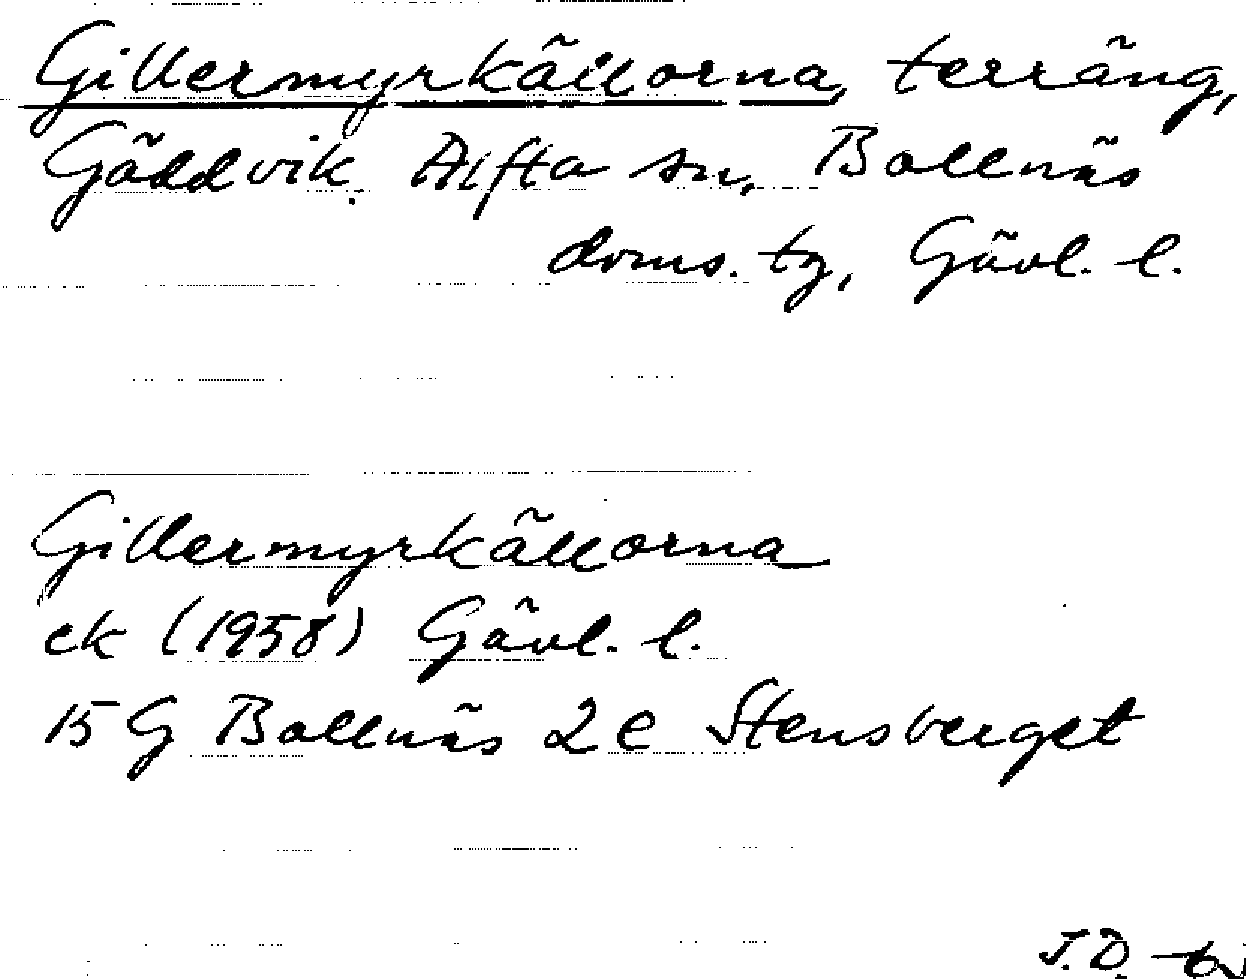 Gillermyrkällorna, terräng,
Gäddvik. Alfta sn, Bollnäs
doms. tg, Gävl. l.
Gillermyrkällorna
ek (1958) Gävl. l.
15 G Bollnäs 2 e Stensberget
J.D.